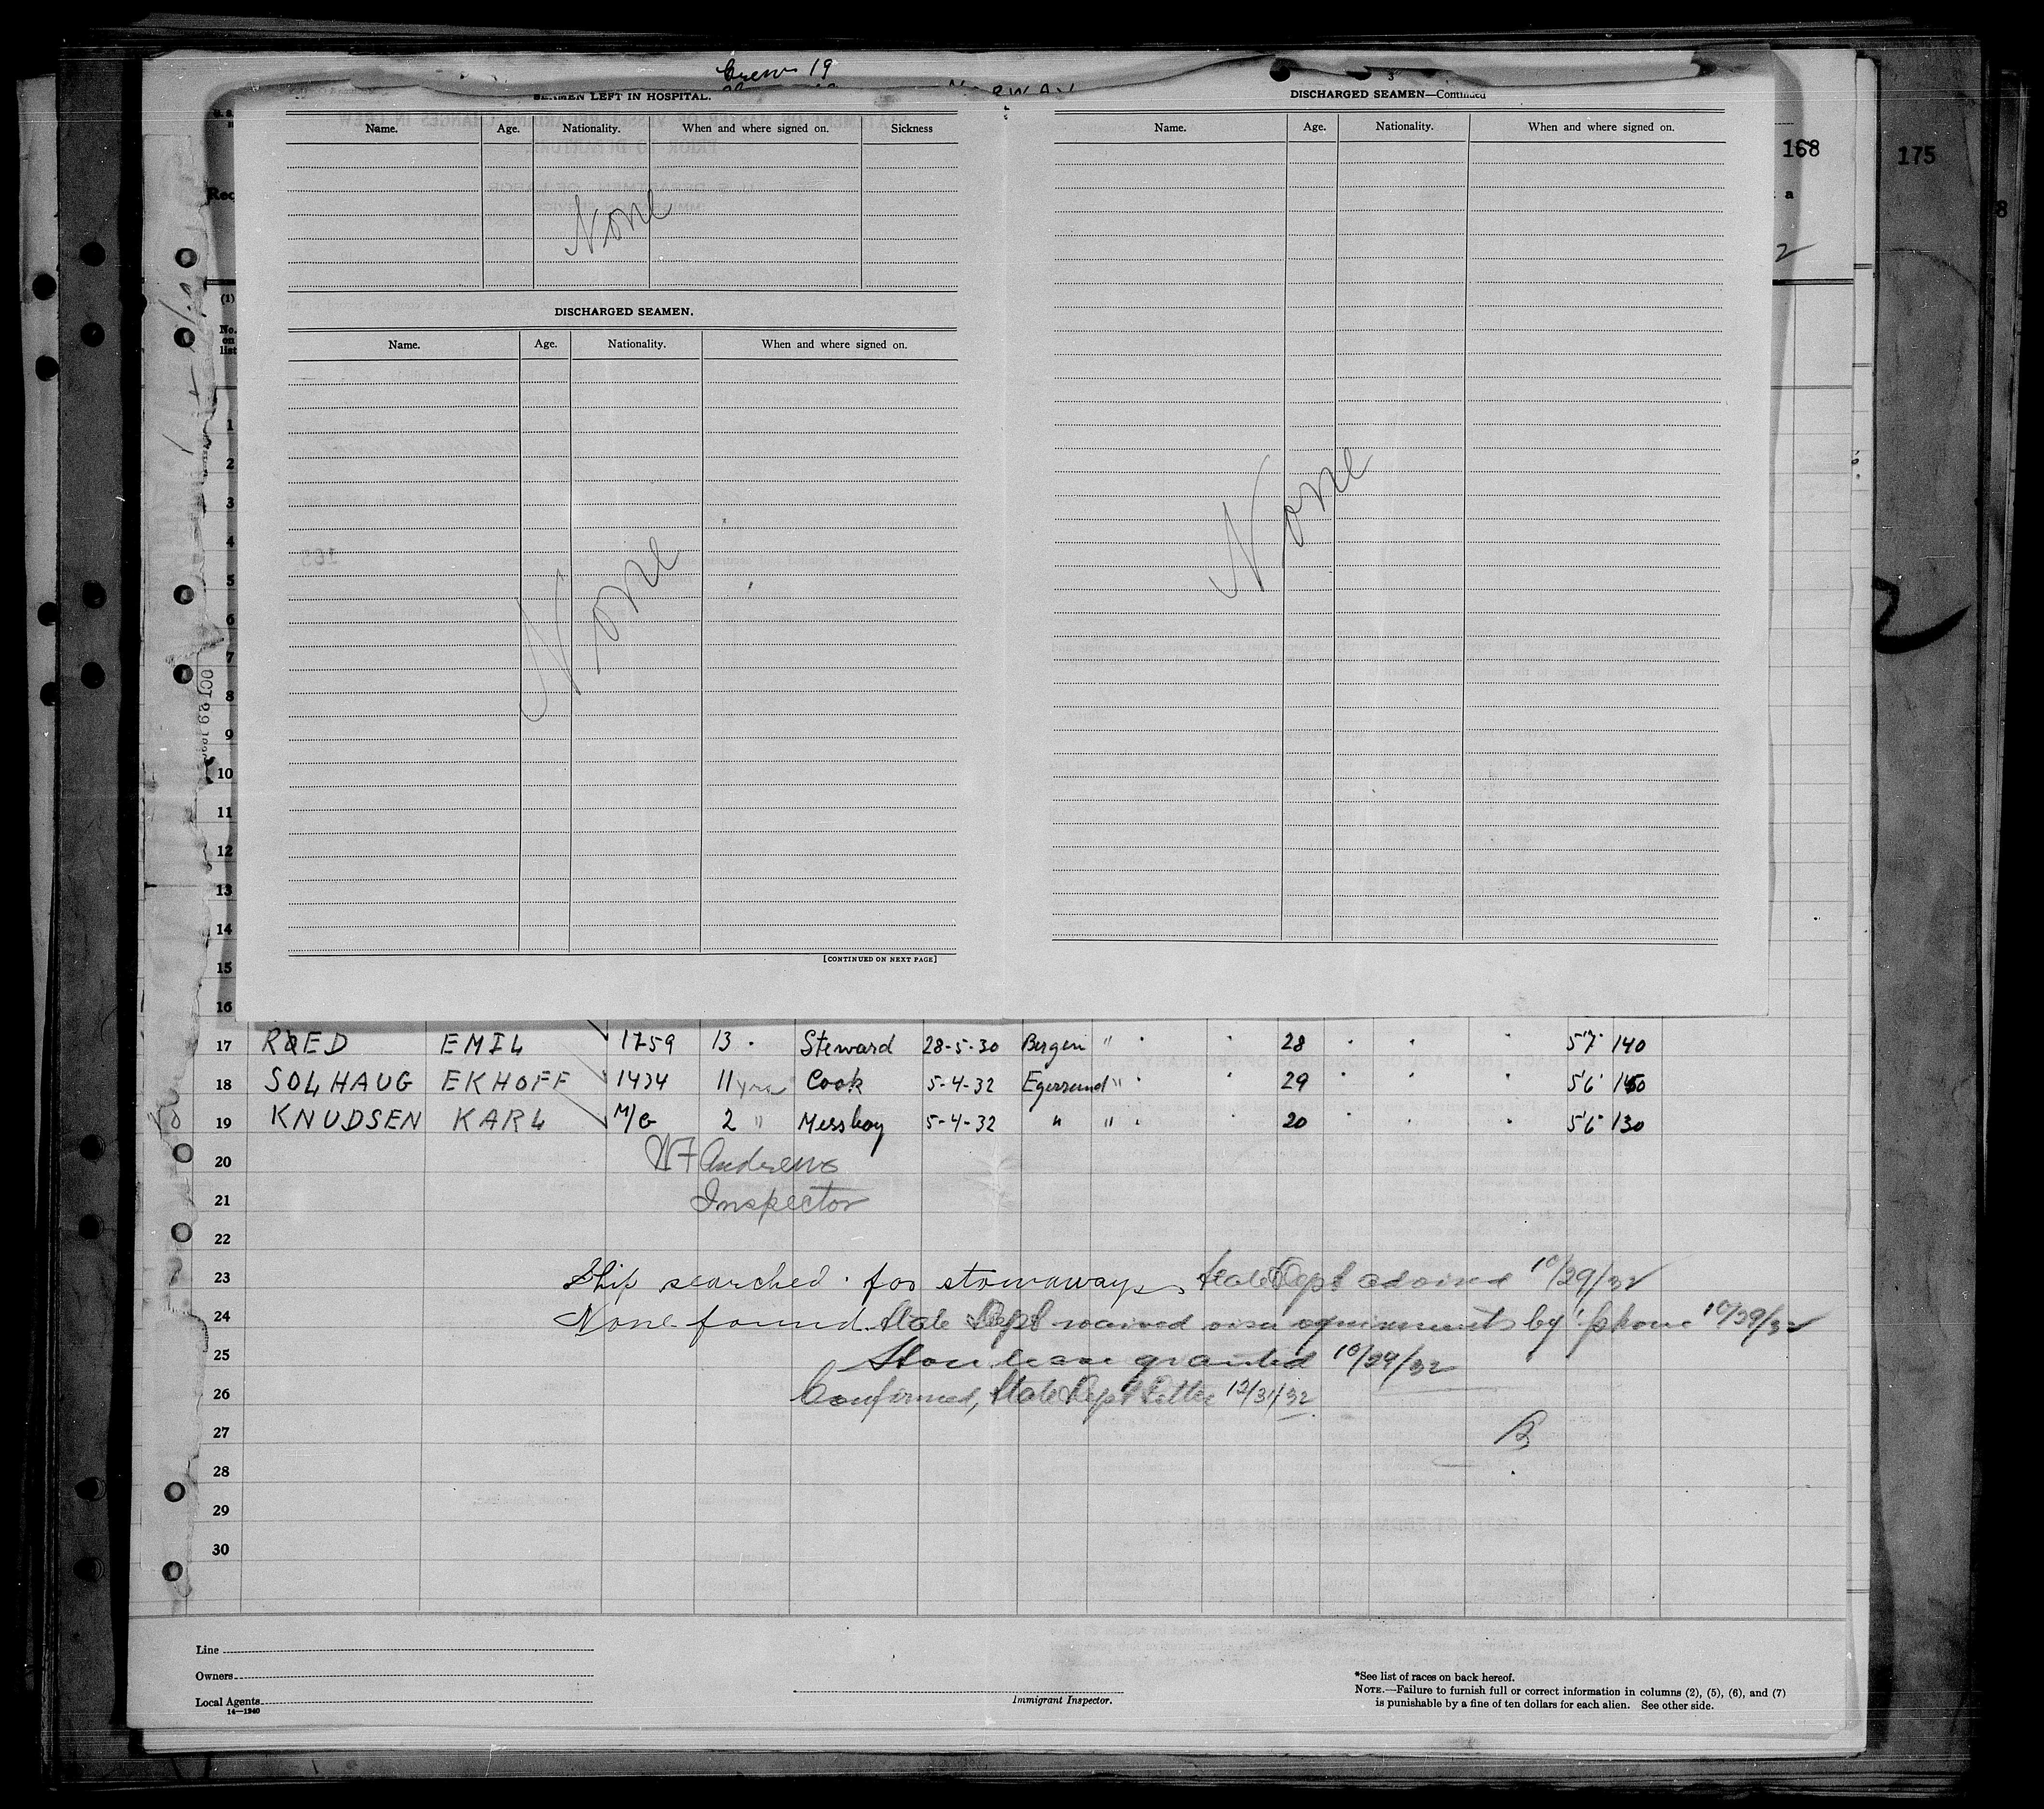 Crew 19
3
SEAMEN LEFT IN HOSPITAL.
Name. Age. Nationality. When and where signed on. Sickness
None
DISCHARGED SEAMEN.
Name. Age. Nationality. When and where signed on.
None
[CONTINUED ON NEXT PAGE]
DISCHARGED SEAMEN—Continued
Name. Age. Nationality. When and where signed on.
None
168
175
a
8
2
(1)
No.
on
list
1
2
3
4
5
6
7
8
9
10
11
12
13
14
15
16
17 RØED EMIL 1759 13 " Steward 28-5-30 Bergen " " " 28 " " " 5'7" 140
18 SOLHAUG EKHOFF 1434 11 yrs Cook 5-4-32 Egersund " " " 29 " " " 5'6" 150
19 KNUDSEN KARL M/G 2 " Messboy 5-4-32 " " " " 20 " " " 5'6" 130
20 WF Andrews
21 Inspector
22
23 Ship searched for stowaways State Dept advised 10/29/32
24 None found. State Dept waived visa requirements by 'phone 10/29/32
25 Shore leave granted 10/29/32
26 Confirmed, State Dept Letter 12/31/32
27 B
28
29
30
Line
Owners
Local Agents
14—1240
Immigrant Inspector.
*See list of races on back hereof.
NOTE.—Failure to furnish full or correct information in columns (2), (5), (6), and (7)
is punishable by a fine of ten dollars for each alien. See other side.